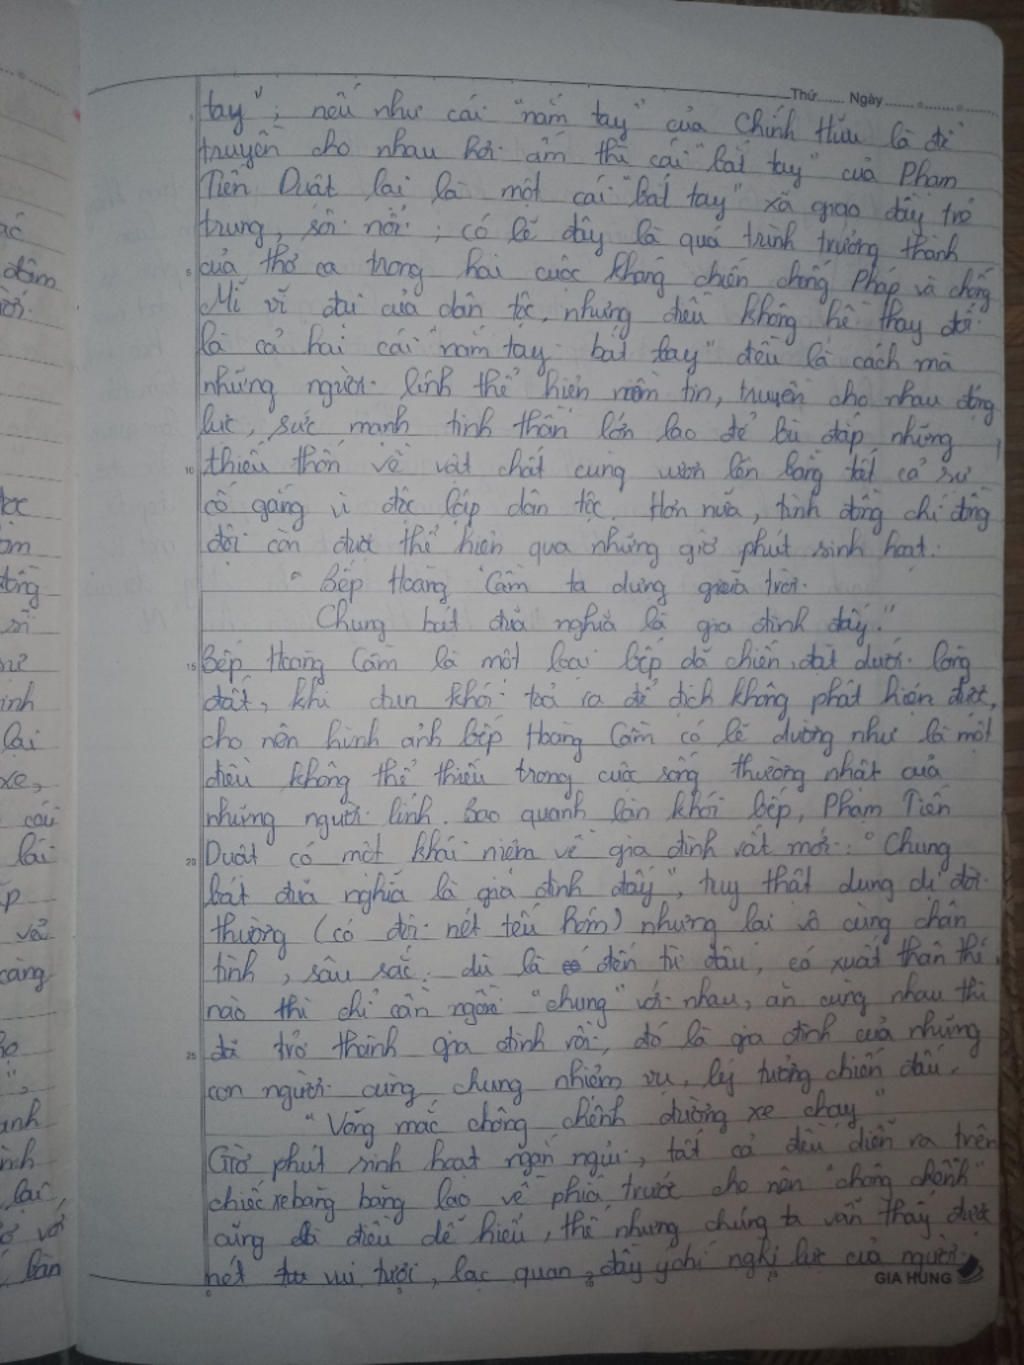 Thứ...... Ngày
tay"; nếu như cái "nắm tay" của Chính Hữu là để
truyền cho nhau hơi ấm thì cái "bắt tay" của Phạm
Tiến Duật lại là một cái "bắt tay" xã giao đầy trẻ
trung, sôi nổi; có lẽ đây là quá trình trưởng thành
của thơ ca trong hai cuộc kháng chiến chống Pháp và chống
Mĩ vĩ đại của dân tộc, nhưng điều không hề thay đổi
là cả hai cái "nắm tay - bắt tay" đều là cách mà
những người lính thể hiện niềm tin, truyền cho nhau động
lực, sức mạnh tinh thần lớn lao để bù đắp những
thiếu thốn về vật chất cùng vươn lên bằng tất cả sự
cố gắng vì độc lập dân tộc. Hơn nữa, tình đồng chí đồng
đội còn được thể hiện qua những giờ phút sinh hoạt:
"Bếp Hoàng Cầm ta dựng giữa trời
Chung bát đũa nghĩa là gia đình đấy."
Bếp Hoàng Cầm là một loại bếp dã chiến, đặt dưới lòng
đất, khi đun khói toả ra để địch không phát hiện được,
cho nên hình ảnh bếp Hoàng Cầm có lẽ dường như là một
điều không thể thiếu trong cuộc sống thường nhật của
những người lính. Bao quanh làn khói bếp, Phạm Tiến
Duật có một khái niệm về gia đình rất mới: "Chung
bát đũa nghĩa là gia đình đấy", tuy thật dung dị đời
thường (có đôi nét tếu hóm) nhưng lại vô cùng chân
tình, sâu sắc: dù là đến từ đâu, có xuất thân thế
nào thì chỉ cần ngồi "chung" với nhau, ăn cùng nhau thì
đã trở thành gia đình rồi, đó là gia đình của những
con người cùng chung nhiệm vụ, lý tưởng chiến đấu.
"Võng mắc chông chênh đường xe chạy"
Giờ phút sinh hoạt ngắn ngủi, tất cả đều diễn ra trên
chiếc xe băng băng lao về phía trước cho nên "chông chênh"
cũng là điều dễ hiểu, thế nhưng chúng ta vẫn thấy được
nét vui tươi, lạc quan, đầy ý chí nghị lực của người
GIA HƯNG
5
10
15
20
25